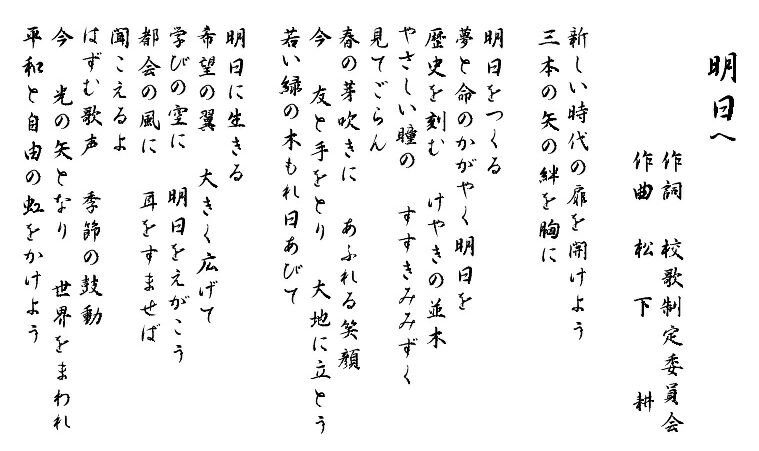 明日へ
作詞　校歌制定委員会
作曲　松下　耕
新しい時代の扉を開けよう
三本の矢の絆を胸に
明日をつくる
夢と命のかがやく明日を
歴史を刻む　けやきの並木
やさしい瞳の　すすきみみずく
見てごらん
春の芽吹きに　あふれる笑顔
今　友と手をとり　大地に立とう
若い緑の木もれ日あびて
明日に生きる
希望の翼　大きく広げて
学びの空に　明日をえがこう
都会の風に　耳をすませば
聞こえるよ
はずむ歌声　季節の鼓動
今　光の矢となり　世界をまわれ
平和と自由の虹をかけよう